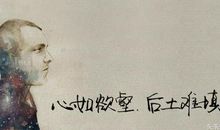 心如微壑.后土难填